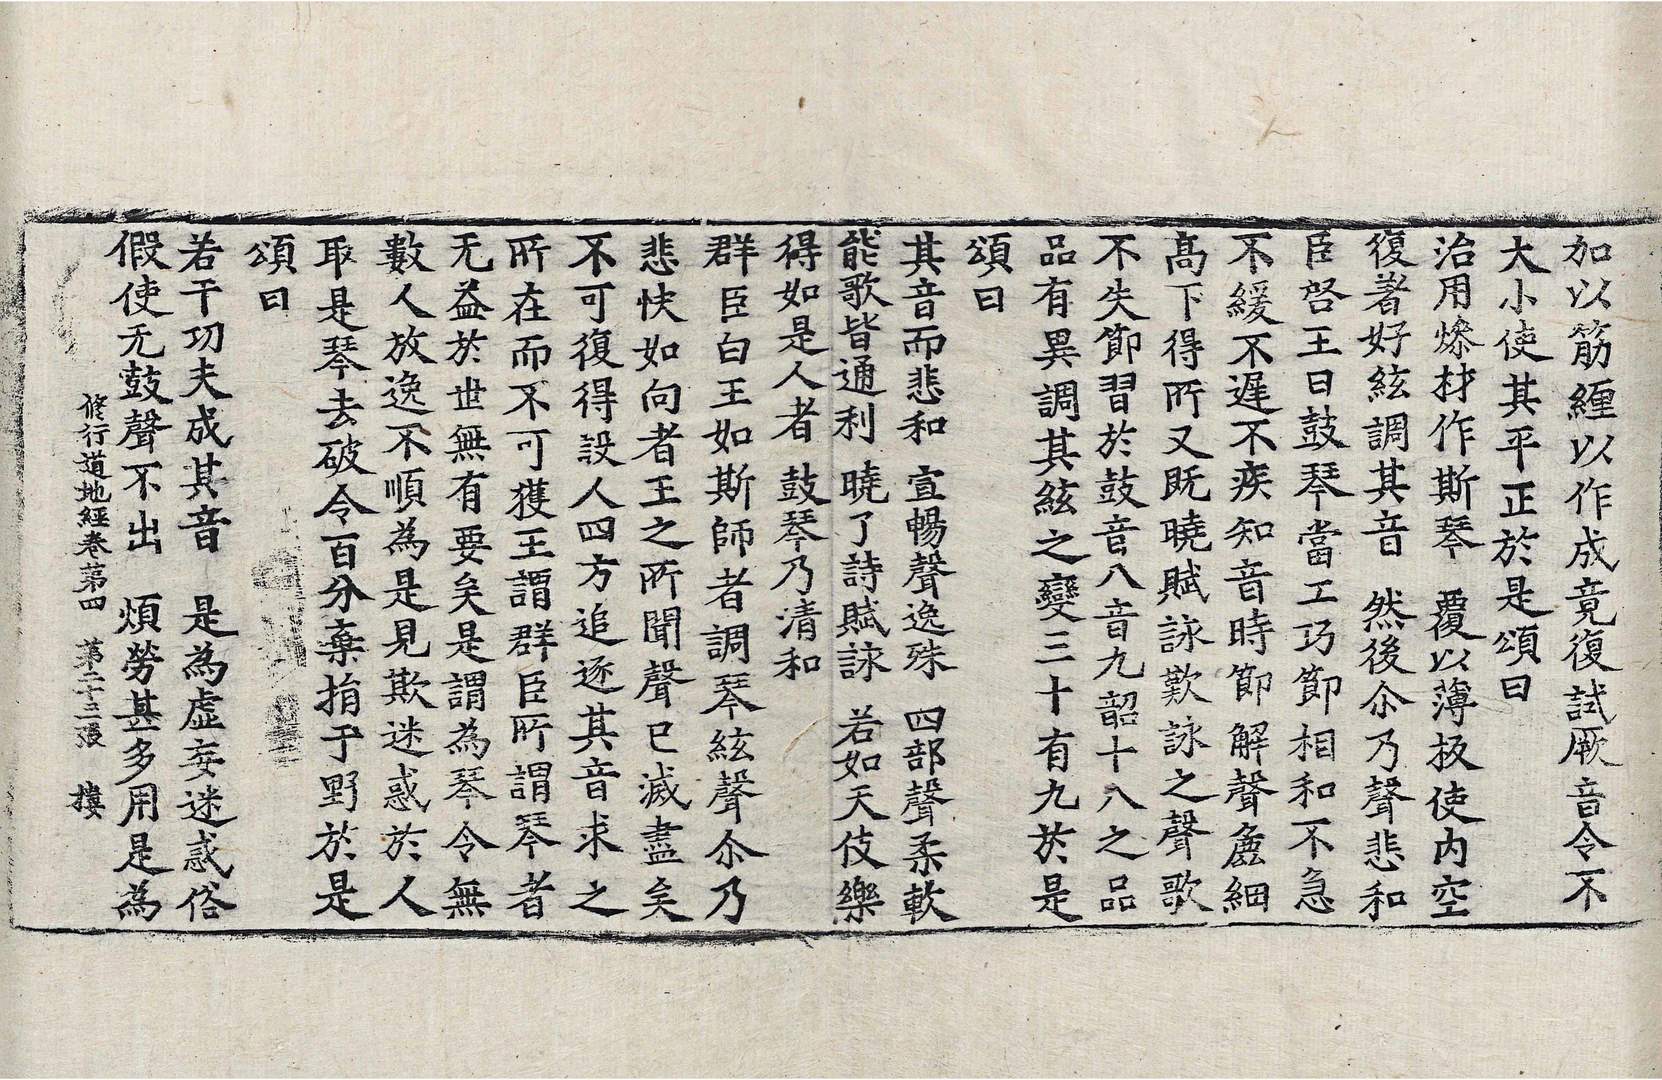 加以筋纏以作成竟復試厥音令不
大小使其平正於是頌曰
治用燥材作斯琴　覆以薄板使內空
復著好絃調其音　然後尒乃聲悲和
臣啓王曰鼓琴當工巧節相和不急
不緩不遲不疾知音時節解聲麁細
高下得所又旣曉賦詠歎詠之聲歌
不失節習於鼓音八音九韶十八之品
品有異調其絃之變三十有九於是
頌曰
其音而悲和　宣暢聲逸殊　四部聲柔軟
能歌皆通利　曉了詩賦詠　若如天伎樂
得如是人者　鼓琴乃清和
群臣白王如斯師者調琴絃聲尒乃
悲快如向者王之所聞聲已滅盡矣
不可復得設人四方追逐其音求之
所在而不可獲王謂群臣所謂琴者
无益於世無有要矣是謂為琴令無
數人放逸不順為是見欺迷惑於人
取是琴去破令百分棄捐于野於是
頌曰
若干功夫成其音　是為虛妄迷惑俗
假使无鼓聲不出　煩勞甚多用是為
修行道地經卷第四　第二十三張　樓